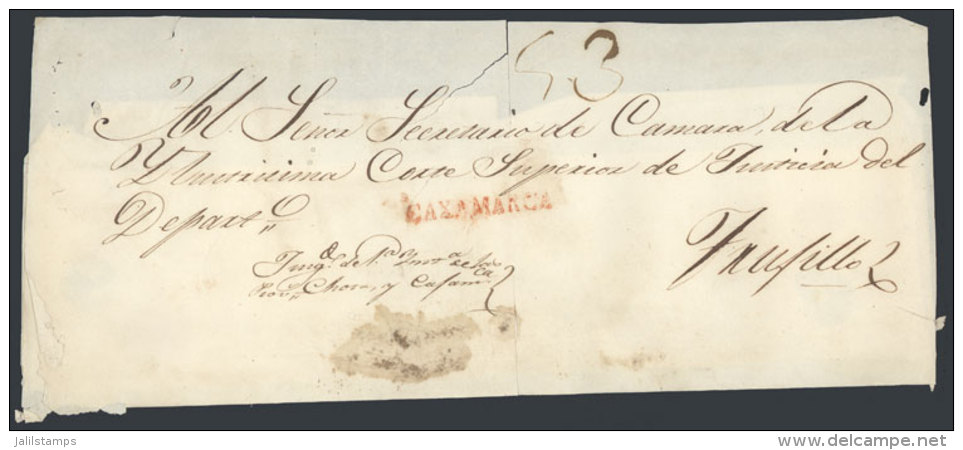 53
Al. Señor Secretario de Camara, de la
Yllustrisima Corte Superior de Justicia del
Departo
CAXAMARCA
Truxillo
Juzgo. de 1a Ynsta de la
Prova Chota, y Caxamca
jalilstamps
www.delcampe.net